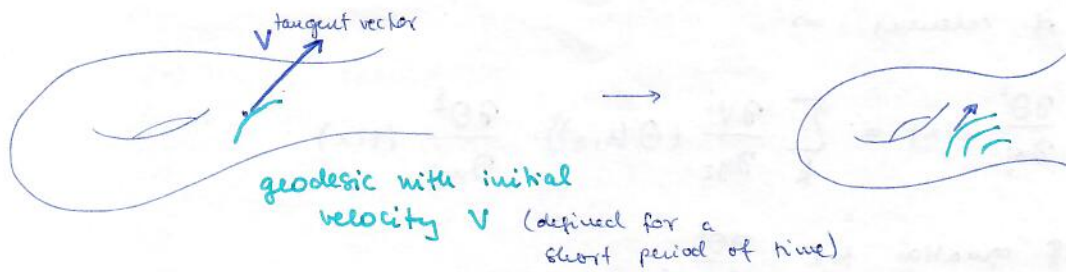 tangent vector
V
geodesic with initial
velocity V (defined for a
short period of time)